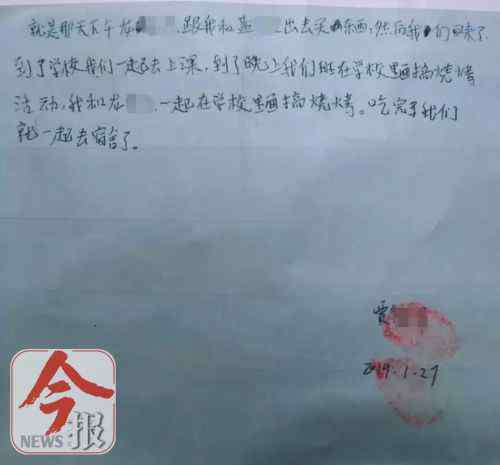 就是那天下午龙 跟我和孟 出去买东西,然后我们回来了
到了学校我们一起去上课,到了晚上我们班在学校里面搞烧烤
活动,我和龙 一起在学校里面搞烧烤。吃完了我们
就一起去宿舍了。
贾
2019.1.27
今报
NEWS